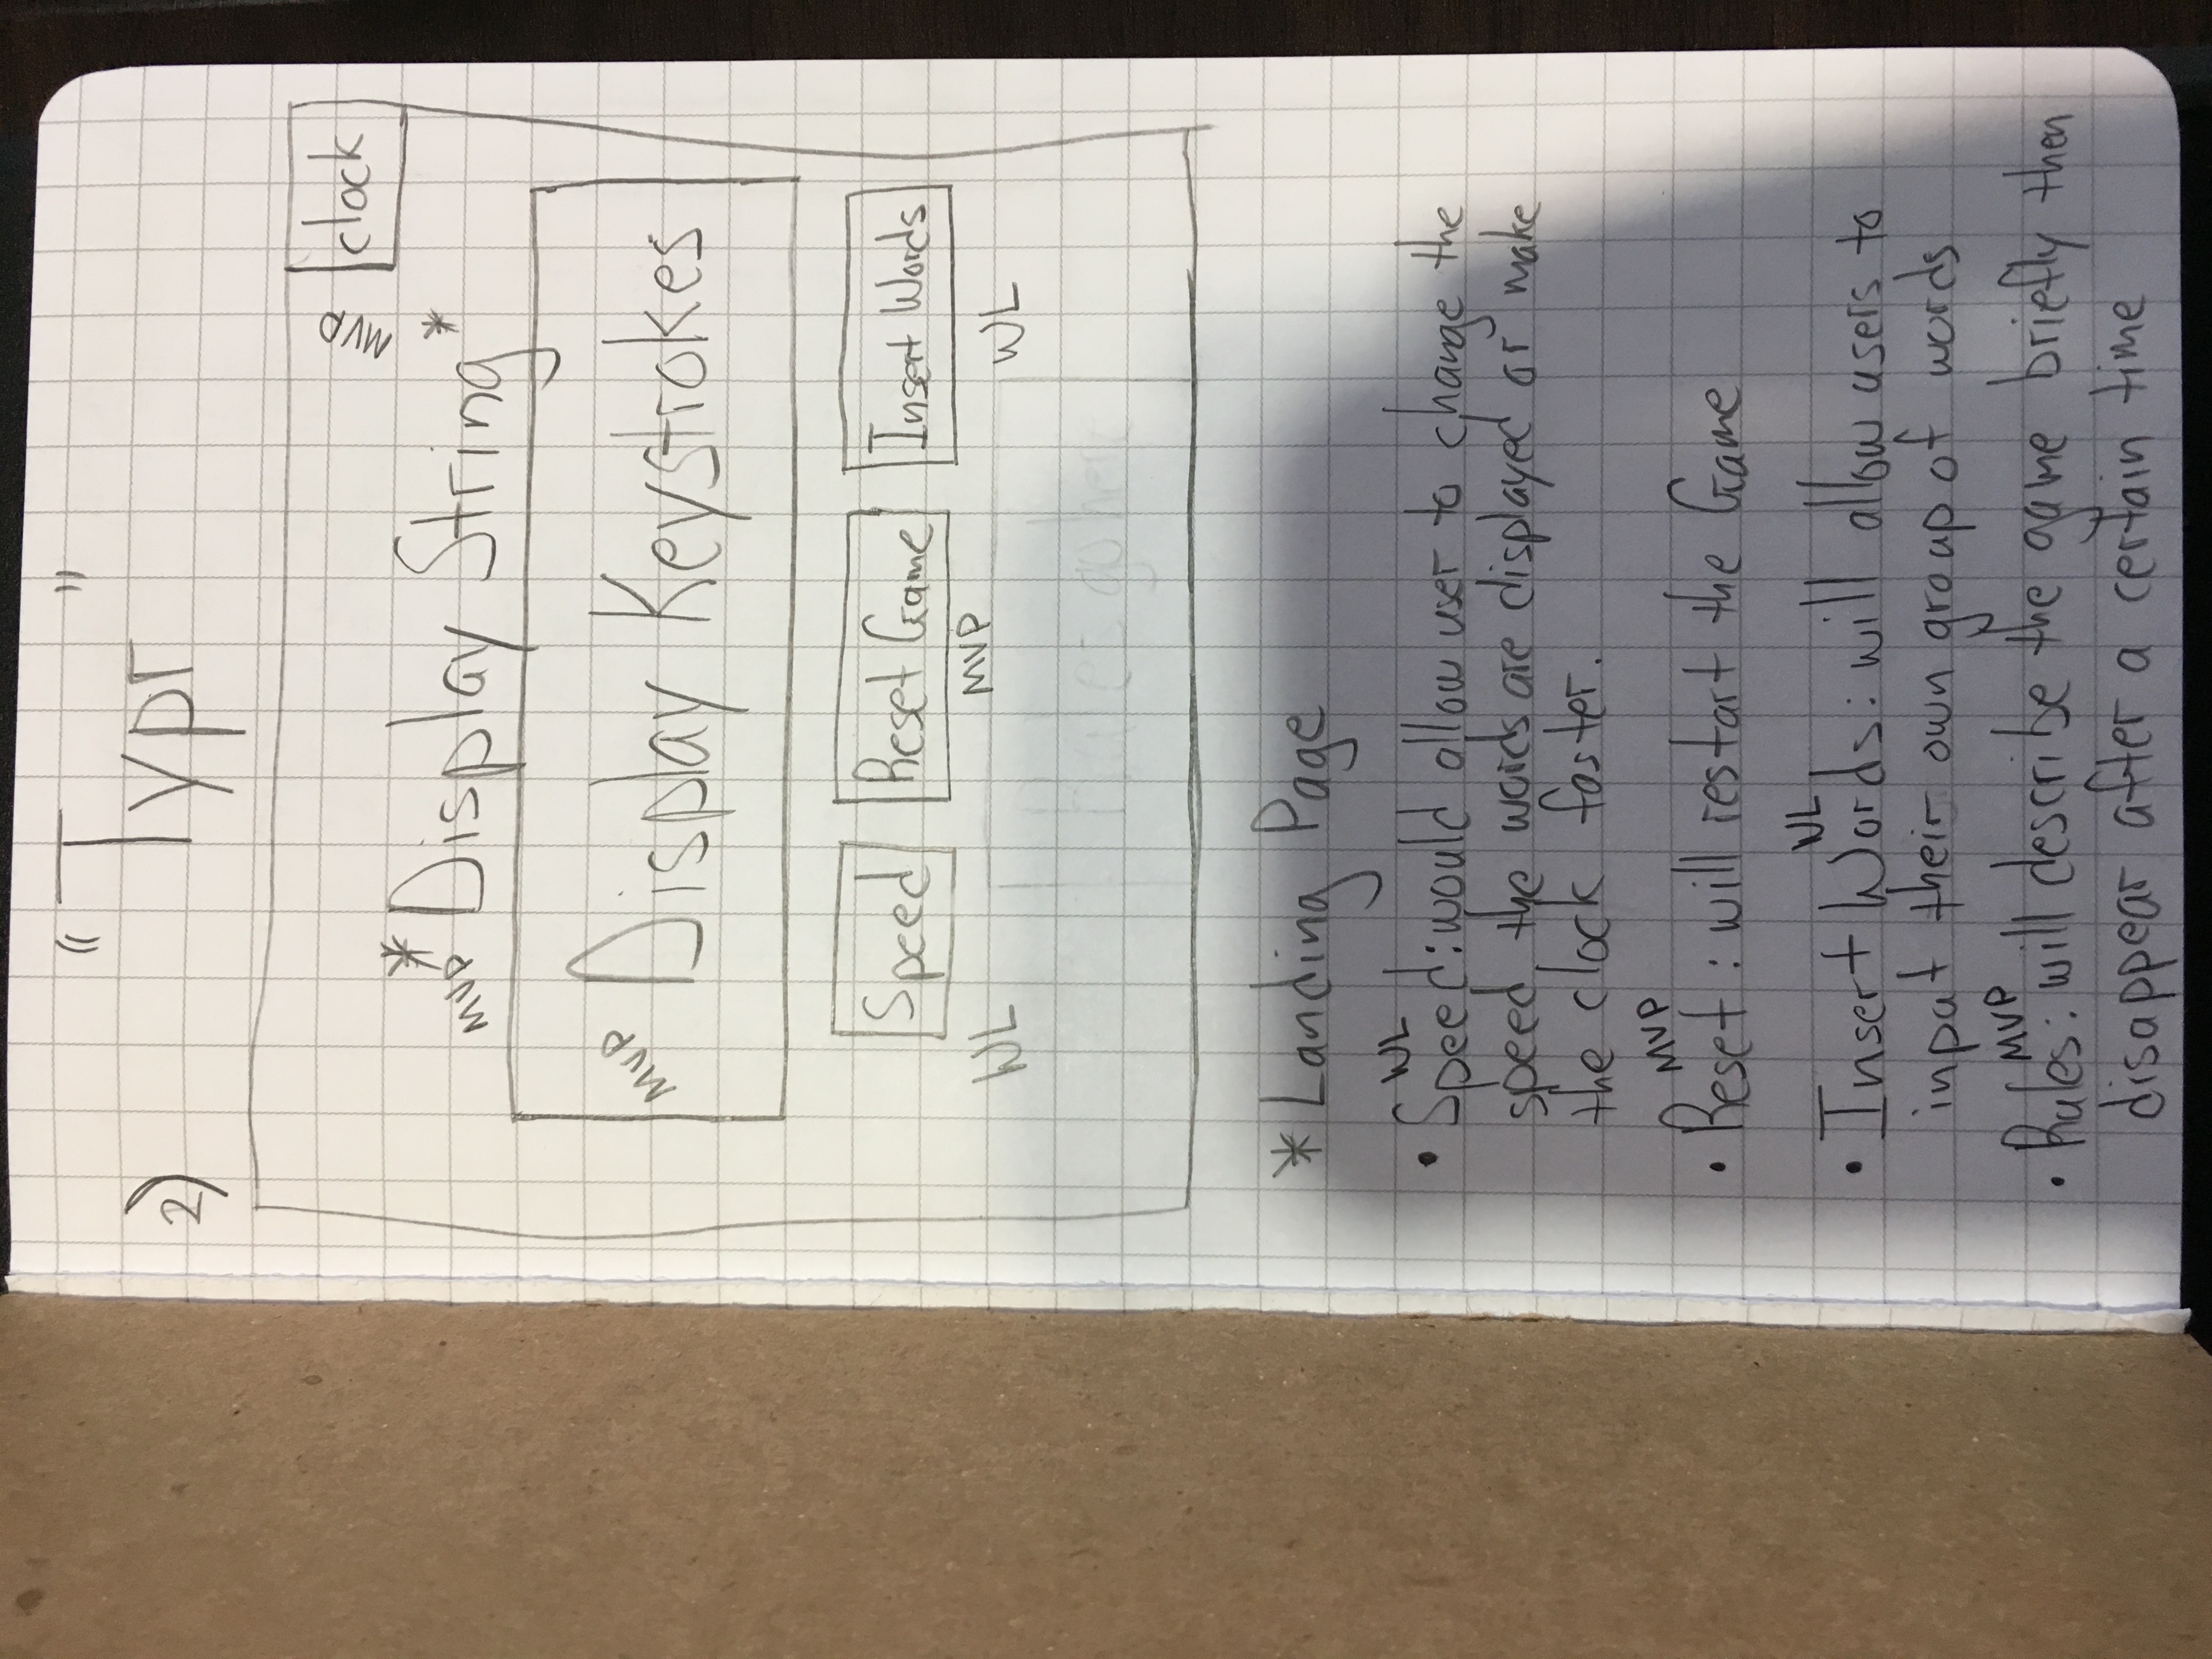 "Typr"
2)
MVP clock
MVP *Display String*
MVP Display Keystrokes
Speed Reset Game Insert Words
WL MVP WL
Rules go here
* Landing Page
WL
• Speed: would allow user to change the
speed the words are displayed or make
the clock faster.
MVP
• Reset: will restart the Game
WL
• Insert Words: will allow users to
input their own group of words
MVP
• Rules: will describe the game briefly then
disappear after a certain time